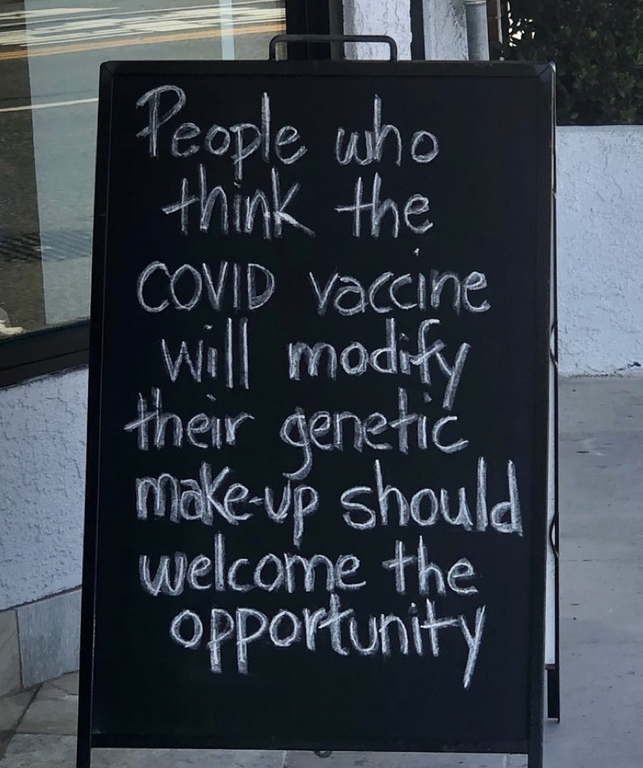 People who
think the
COVID vaccine
will modify
their genetic
make-up should
welcome the
opportunity